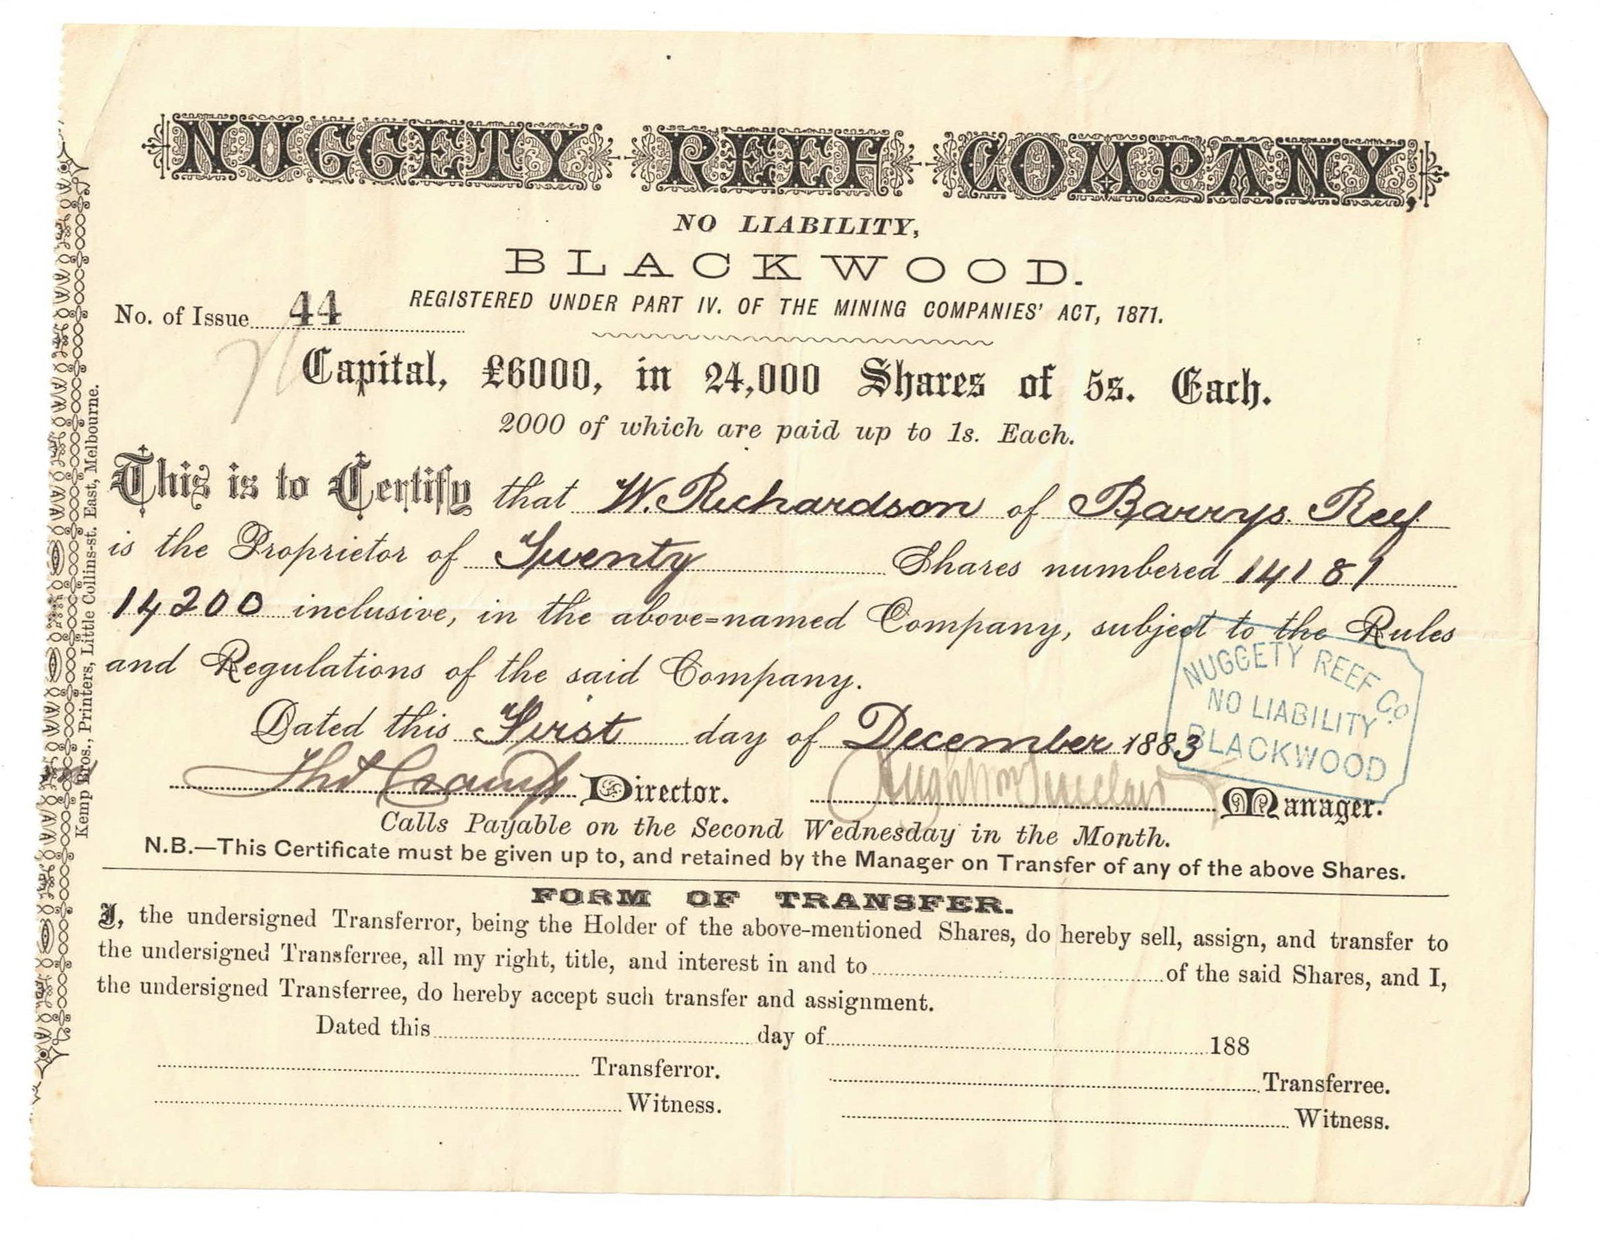 NUGGETY REEF COMPANY,
NO LIABILITY,
BLACKWOOD.
REGISTERED UNDER PART IV. OF THE MINING COMPANIES' ACT, 1871.
No. of Issue 44
Capital, £6000, in 24,000 Shares of 5s. Each.
2000 of which are paid up to 1s. Each.
This is to Certify that W. Richardson of Barrys Reef
is the Proprietor of Twenty Shares numbered 14181
14200 inclusive, in the above=named Company, subject to the Rules
and Regulations of the said Company.
NUGGETY REEF Co
NO LIABILITY
BLACKWOOD
Dated this First day of December 1883
Director. Manager.
Calls Payable on the Second Wednesday in the Month.
N.B.—This Certificate must be given up to, and retained by the Manager on Transfer of any of the above Shares.
FORM OF TRANSFER.
I, the undersigned Transferror, being the Holder of the above-mentioned Shares, do hereby sell, assign, and transfer to
the undersigned Transferree, all my right, title, and interest in and to of the said Shares, and I,
the undersigned Transferree, do hereby accept such transfer and assignment.
Dated this day of 188
Transferror. Transferree.
Witness. Witness.
Kemp Bros., Printers, Little Collins-st. East, Melbourne.